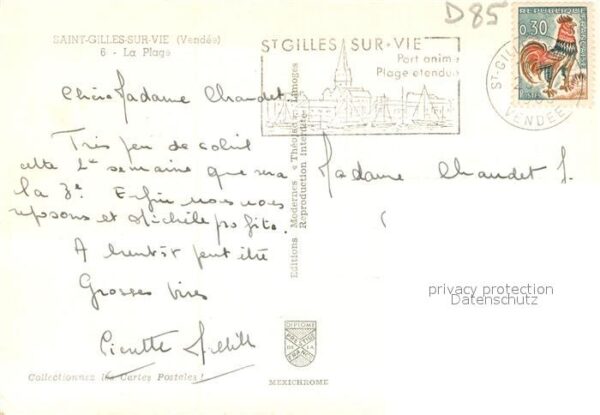 D85
SAINT-GILLES-SUR-VIE (Vendée)
6 - La Plage
ST GILLES SUR VIE
Port animé
Plage etendue
REPUBLIQUE FRANÇAISE
0,30
ST-GILLES
VENDEE
Chère Madame Chaudet
Très peu de soleil
cette 2e semaine que sera
la 3e. Enfin nous nous
reposons et Michèle profite.
A bientôt peut être
Grosses bises
Madame Chaudet S.
Editions Modernes « Théojac », Limoges
Reproduction interdite
privacy protection
Datenschutz
DIPLOME
PRESTIGE
DE LA
FRANCE
MEXICHROME
Collectionnez les Cartes Postales !